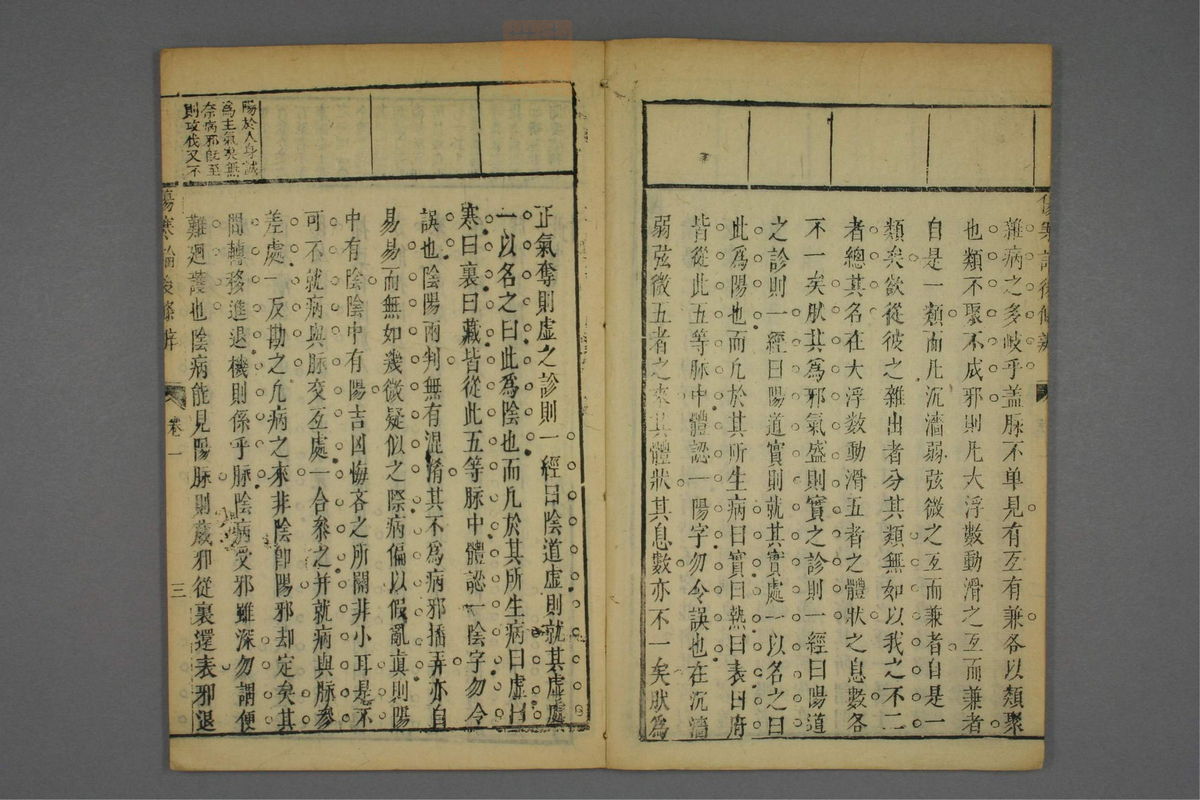 雜病之多岐乎蓋脉不单見有互有兼各以類聚
也類不聚不成邪則凡大浮數動滑之互而兼者
自是一類而凡沉濇弱弦微之互而兼者自是一
類矣欲從彼之雜出者分其類無如以我之不二
者總其名在大浮數動滑五者之體狀之息數各
不一矣肰其為邪氣盛則實之診則一經曰陽道
之診則一經曰陽道實則就其實處一以名之曰
此爲陽也而凡於其所生病曰實曰熱曰表曰府
皆從此五等脉中體認一陽字勿令誤也在沉濇
弱弦微五者之來其體狀其息數亦不一矣肰爲
傷寒論後條辨
陽於人身誠
爲主氣矣無
奈病邪旣至
則攻伐又不
正氣奪則虛之診則一經曰陰道虛則就其虛處
一以名之曰此爲陰也而凡於其所生病曰虛曰
寒曰裏曰藏皆從此五等脉中體認一陰字勿令
誤也陰陽兩判無有混淆其不爲病邪播弄亦自
易易而無如幾微疑似之際病偏以假亂眞則陽
中有陰陰中有陽吉凶悔吝之所關非小耳是不
可不就病與脉交互處一合叅之并就病與脉參
差處一反勘之凡病之來非陰卽陽邪却定矣其
間轉移進退機則係乎脉陰病受邪雖深勿謂便
難廻護也陰病能見陽脉則藏邪從裏還表邪退
傷寒論後條辨
卷一
三